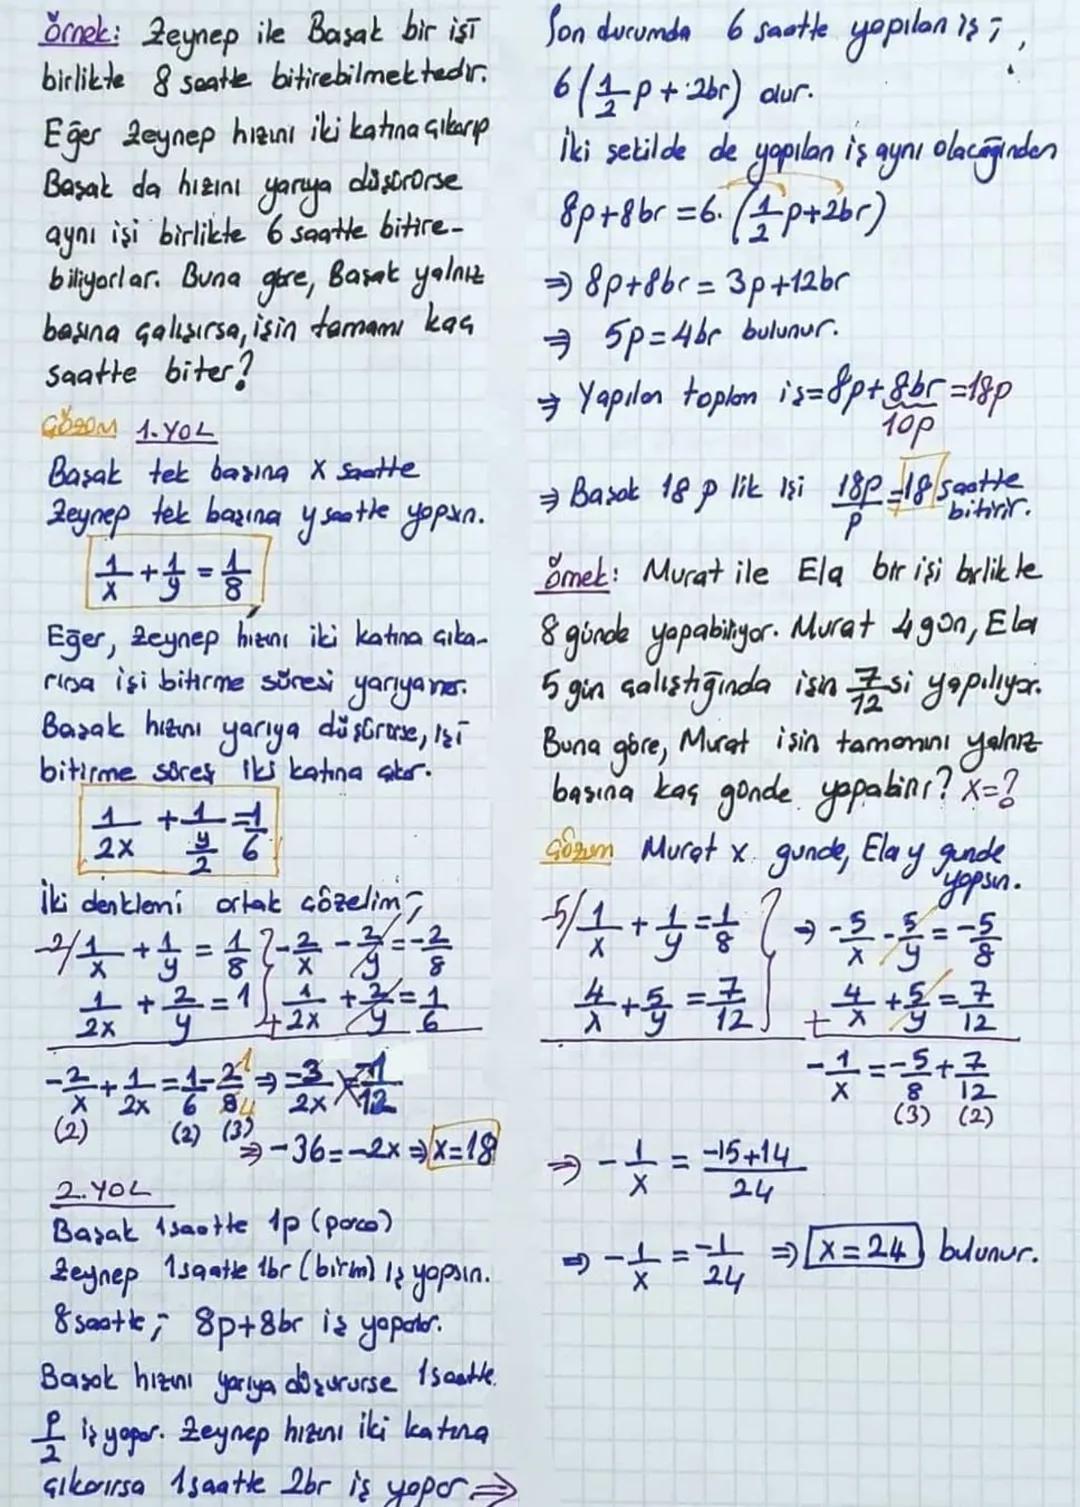 Örnek: Zeynep ile Başak bir işi
birlikte 8 saatte bitirebilmektedir.
Eğer Zeynep hızını iki katına çıkarıp
Başak da hızını yarıya düşürürse
aynı işi birlikte 6 saatte bitire-
biliyorlar. Buna göre, Başak yalnız
başına çalışırsa, işin tamamı kaç
saatte biter?
Çözüm 1. YOL
Başak tek başına x saatte
Zeynep tek başına y saatte yapsın.
1/x + 1/y = 1/8
Eğer, Zeynep hızını iki katına çıka-
rırsa işi bitirme süresi yarıya iner.
Başak hızını yarıya düşürürse, işi
bitirme süresi iki katına çıkar.
1/2x + 1/(y/2) = 1/6
İki denklemi ortak çözelim;
-2/ 1/x + 1/y = 1/8 } -2/x - 2/y = -2/8
1/2x + 2/y = 1 } + 1/2x + 2/y = 1/6
-2/x + 1/2x = 1/6 - 2/8 ⇒ -3/2x = -1/12
(2) (2) (3)
⇒ -36 = -2x ⇒ x = 18
2. YOL
Başak 1 saatte 1p (parça)
Zeynep 1 saatte 1br (birim) iş yapsın.
8 saatte; 8p+8br iş yaparlar.
Başak hızını yarıya düşürürse 1 saatte
p/2 iş yapar. Zeynep hızını iki katına
çıkarırsa 1 saatte 2br iş yapar ⇒
Son durumda 6 saatte yapılan iş;
6(1/2 p + 2br) olur.
İki şekilde de yapılan iş aynı olacağından
8p+8br = 6.(1/2 p+2br)
⇒ 8p+8br = 3p+12br
⇒ 5p = 4br bulunur.
⇒ Yapılan toplam iş = 8p+8br = 18p
10p
⇒ Başak 18 p lik işi 18p/p = 18 saatte
bitirir.
Örnek: Murat ile Ela bir işi birlikte
8 günde yapabiliyor. Murat 4 gün, Ela
5 gün çalıştığında işin 7/12 si yapılıyor.
Buna göre, Murat işin tamamını yalnız
başına kaç günde yapabilir? x=?
Çözüm Murat x günde, Ela y günde
yapsın.
-5/ 1/x + 1/y = 1/8 } ⇒ -5/x - 5/y = -5/8
4/x + 5/y = 7/12 } + 4/x + 5/y = 7/12
-1/x = -5/8 + 7/12
(3) (2)
⇒ -1/x = -15+14/24
⇒ -1/x = -1/24 ⇒ x = 24 bulunur.